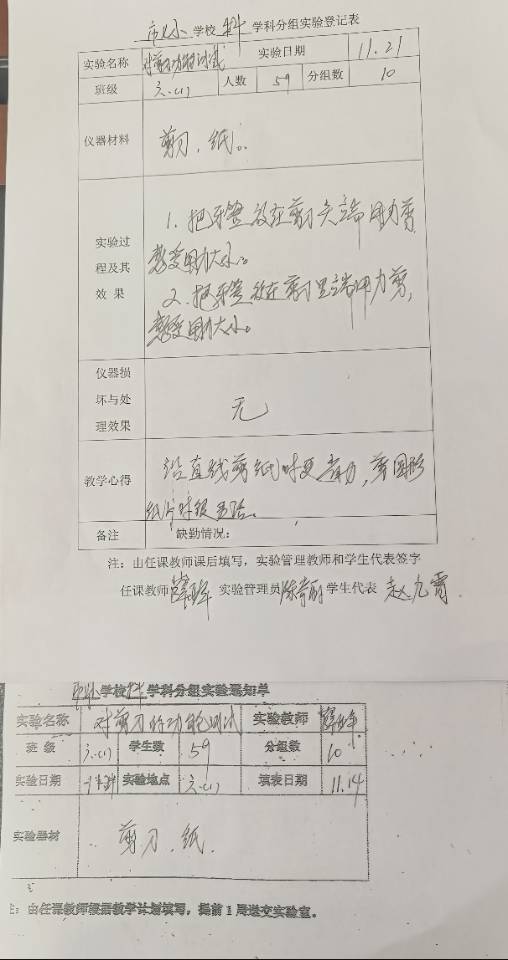 学校 科 学科分组实验登记表
实验名称 对剪刀功能测试 实验日期 11.21
班级 六.(1) 人数 59 分组数 10
仪器材料 剪刀.纸。
实验过程及其效果
1. 把牙签放在剪刀尖端用力剪
感受用力大小。
2. 把牙签放在剪刀里端用力剪,
感受用力大小。
仪器损坏与处理效果 无
教学心得 沿直线剪纸时更省力,剪圆形
纸片时
备注 缺勤情况:
注:由任课教师课后填写,实验管理教师和学生代表签字
任课教师 实验管理员 学生代表 赵九霄
学校科学科分组实验通知单
实验名称 对剪刀的功能测试 实验教师
班 级 六.(1) 学生数 59 分组数 10
实验日期 实验地点 六.(1) 填表日期 11.14
实验器材 剪刀.纸.
注:由任课教师根据教学计划填写,提前1周送交实验室。